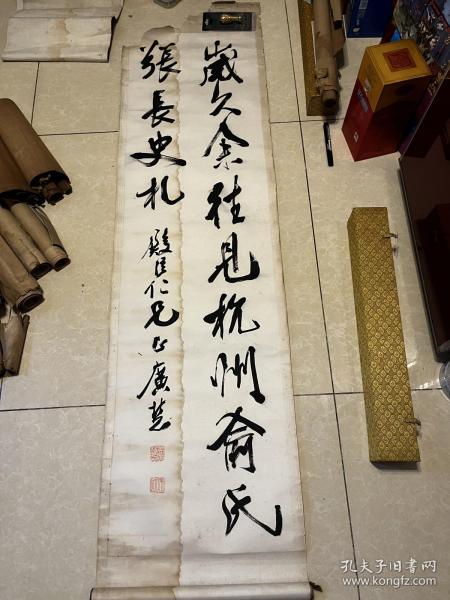 歲久余往見杭州俞氏
張長史札 殿臣仁兄正 廣
孔夫子旧书网
www.kongfz.com